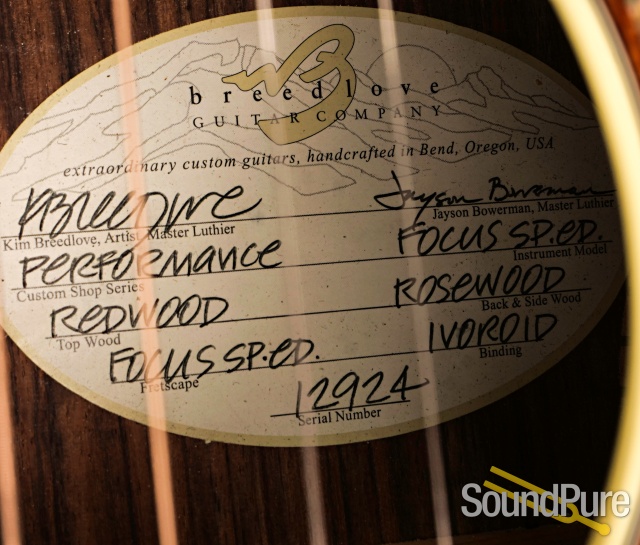 breedlove
GUITAR COMPANY
extraordinary custom guitars, handcrafted in Bend, Oregon, USA
KBreedlove Jayson Bowerman
Kim Breedlove, Artist, Master Luthier Jayson Bowerman, Master Luthier
PERFORMANCE FOCUS SP.ED.
Custom Shop Series Instrument Model
REDWOOD ROSEWOOD
Top Wood Back & Side Wood
FOCUS SP.ED. IVOROID
Fretscape Binding
12924
Serial Number
SoundPure